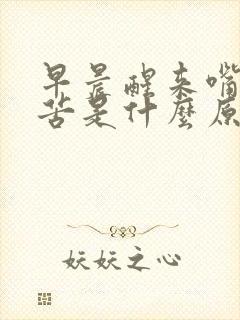 早晨醒来嘴
苦是什麼原
妖妖之心